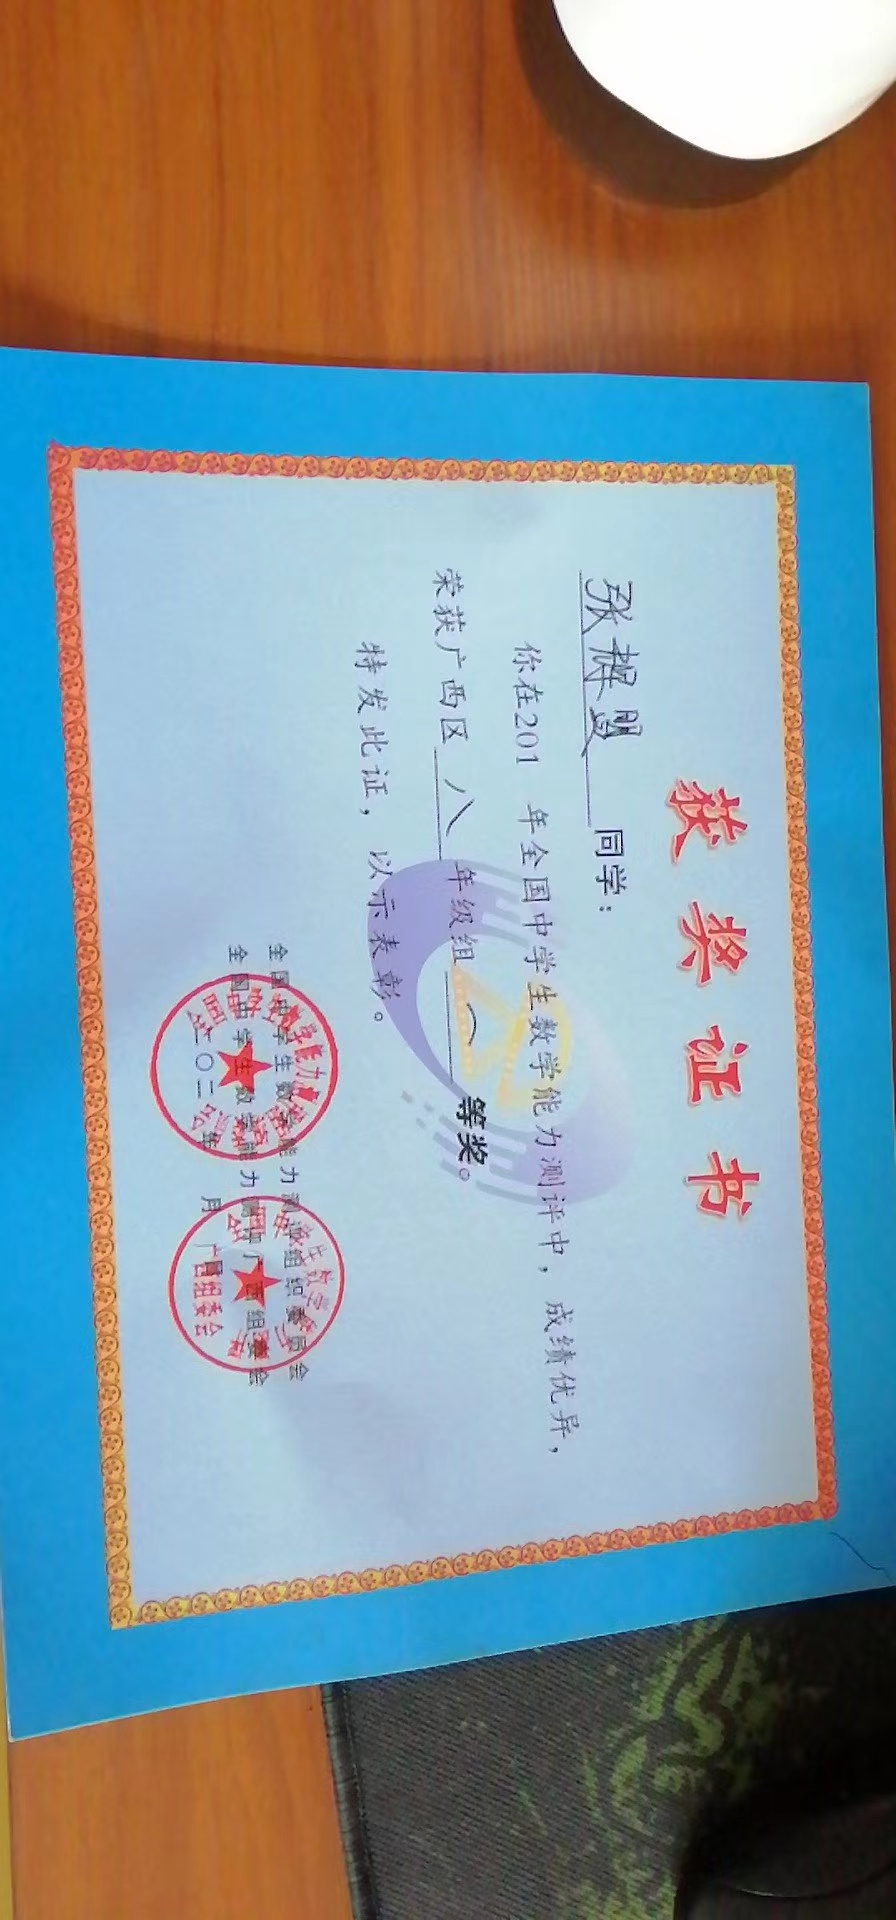 获奖证书
张辉盟 同学：
你在201 年全国中学生数学能力测评中，成绩优异，
荣获广西区 八 年级组 一 等奖。
特发此证，以示表彰。
全国中学生数学能力测评组织委员会
全国中学生数学能力测评广西组委会
二〇一 年 月
广西组委会